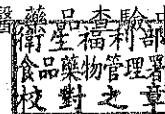 醫藥品查驗中
衛生福利部
食品藥物管理署
校對之章